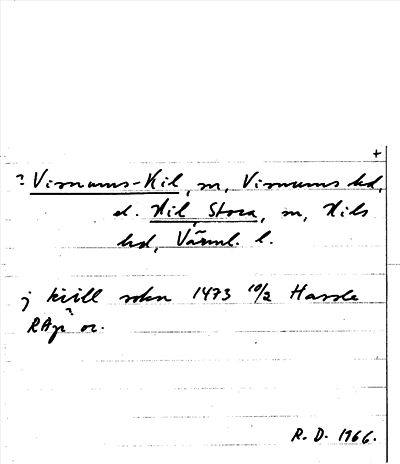 +
? Visnums-Kil, sn, Visnums hd,
el. Kil, Stora, sn, Kils
hd, Värml. l.
j kiill sokn 1473 10/2 Hassle
RAp? or.
R. D. 1966.